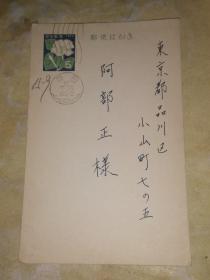 郵便はがき
東京都品川区
小山町七の五
阿部正様
5